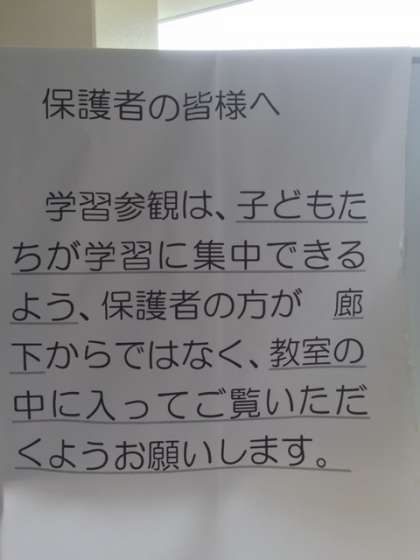 保護者の皆様へ
学習参観は、子どもた
ちが学習に集中できる
よう、保護者の方が　廊
下からではなく、教室の
中に入ってご覧いただ
くようお願いします。